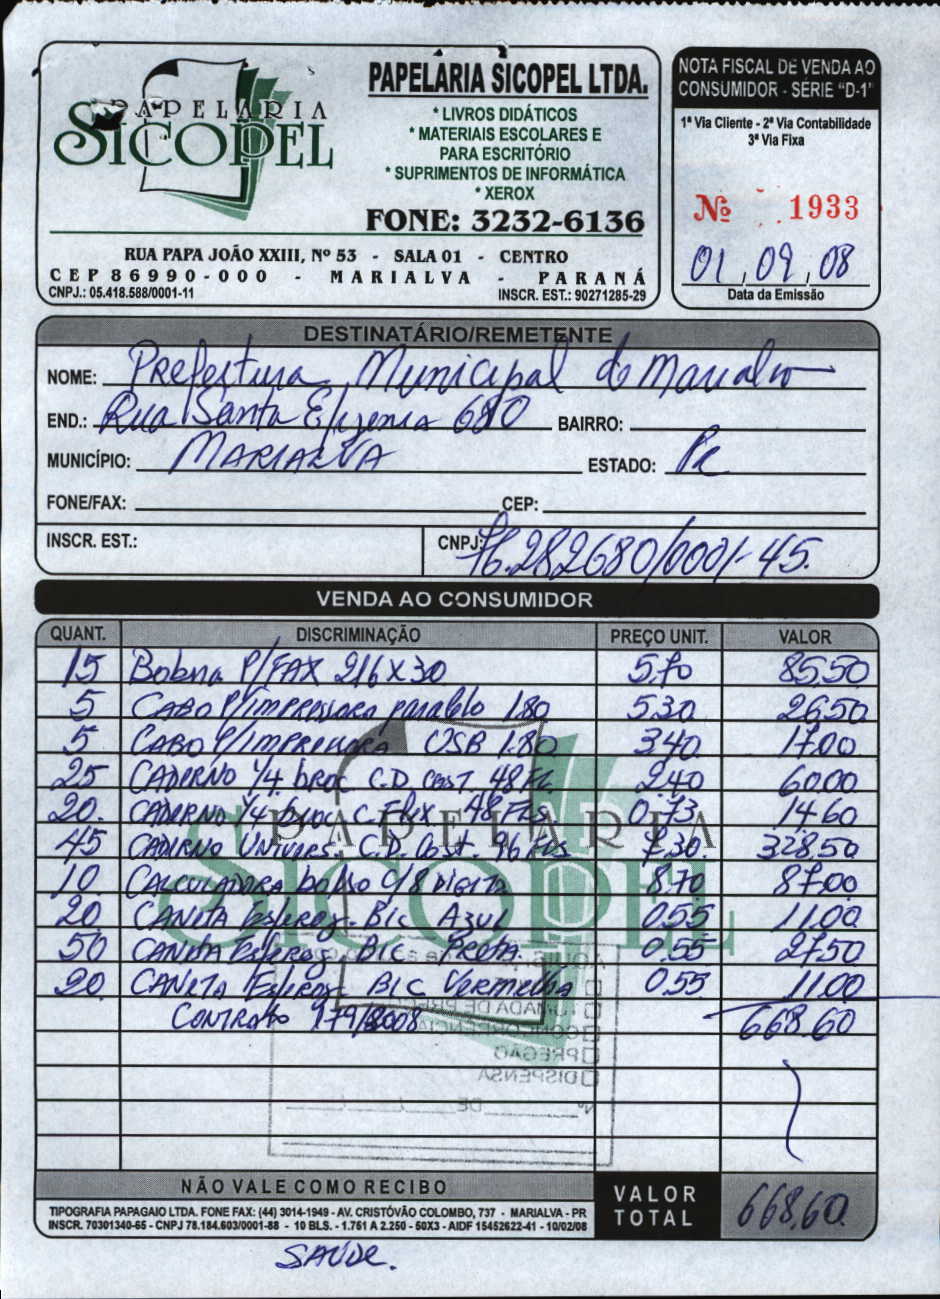 PAPELARIA
SICOPEL
PAPELARIA SICOPEL LTDA.
* LIVROS DIDÁTICOS
* MATERIAIS ESCOLARES E
PARA ESCRITÓRIO
* SUPRIMENTOS DE INFORMÁTICA
* XEROX
FONE: 3232-6136
RUA PAPA JOÃO XXIII, Nº 53 - SALA 01 - CENTRO
CEP 86990-000 - MARIALVA - PARANÁ
CNPJ.: 05.418.588/0001-11 INSCR. EST.: 90271285-29
NOTA FISCAL DE VENDA AO
CONSUMIDOR - SERIE "D-1"
1ª Via Cliente - 2ª Via Contabilidade
3ª Via Fixa
Nº 1933
01, 09, 08
Data da Emissão
DESTINATÁRIO/REMETENTE
NOME: Prefeitura Municipal de Marialva
END.: Rua Santa Efigenia 680 BAIRRO:
MUNICÍPIO: MARIALVA ESTADO: Pr
FONE/FAX: CEP:
INSCR. EST.: CNPJ: 76.282680/0001-45.
VENDA AO CONSUMIDOR
QUANT. DISCRIMINAÇÃO PREÇO UNIT. VALOR
15 Bobna P/FAX 216 X 30 5,70 85,50
5 CABO P/IMPRESSORA paralelo 1.80 5.30 26,50
5 CABO P/IMPRESSORA USB 1.80 3.40 17.00
25 CADERNO 1/4 broc C.D. Cost. 48 Fl. 2.40 60.00
20. CADERNO 1/4 broc C. Flex 48 Fls 0.73 14.60
45 CADERNO Univers. C.D. Cost. 96 Fls 7.30. 328,50
10 CALCULADORA bolso C/8 DIGITO 8.70 87.00
20 CANETA Esferog. Bic AZUL 0.55 11.00
50 CANETA Esferog. Bic PRETA. 0.55 27.50
20 CANETA Esferog. Bic Vermelha 0.55 11.00
CONTRATO 179/2008 668.60
PAPELARIA
SICOPEL
TOMADA DE PREÇO
CONCORRÊNCIA
PREGÃO
DISPENSA
Nº DE
NÃO VALE COMO RECIBO
TIPOGRAFIA PAPAGAIO LTDA. FONE FAX: (44) 3014-1949 - AV. CRISTÓVÃO COLOMBO, 737 - MARIALVA - PR
INSCR. 70301340-65 - CNPJ 78.184.603/0001-88 - 10 BLS. - 1.751 A 2.250 - 50X3 - AIDF 15452622-41 - 10/02/08
VALOR
TOTAL
668,60
SAÚDE.